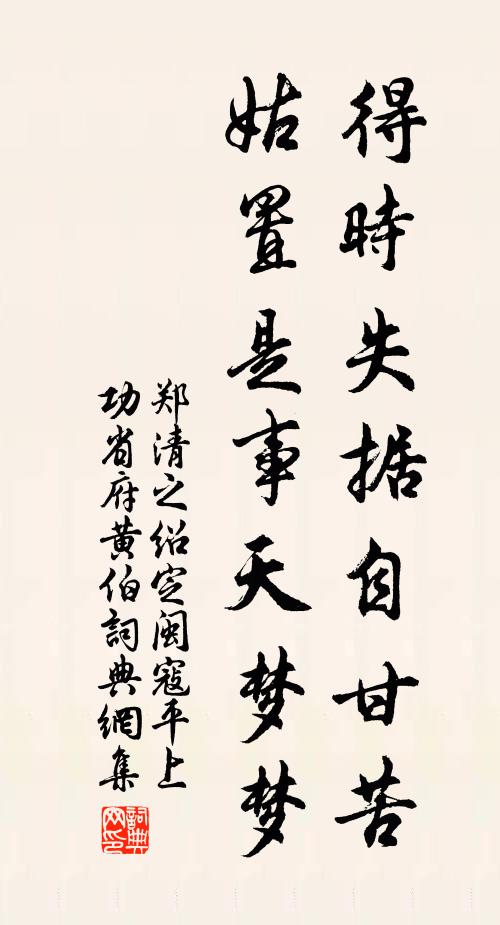 得時失据自甘苦
姑置是事天梦梦
郑清之绍定闽寇平上
功省府黄伯詞典網集
詞典网印